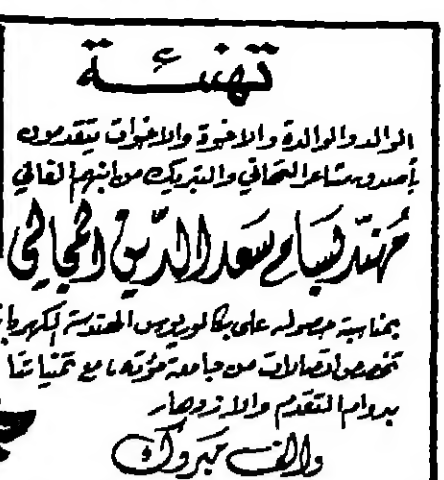 تهنئة
الوالد والوالدة والاخوة والاخوات يتقدمون
بأصدق مشاعر التهاني والتبريك من ابنهم الغالي
مهند بسام سعد الدين المجالي
بمناسبة حصوله على بكالوريوس الهندسة الكهربا
تخصص اتصالات من جامعة مؤته، مع تمنياتنا
بدوام التقدم والازدهار
والف مبروك